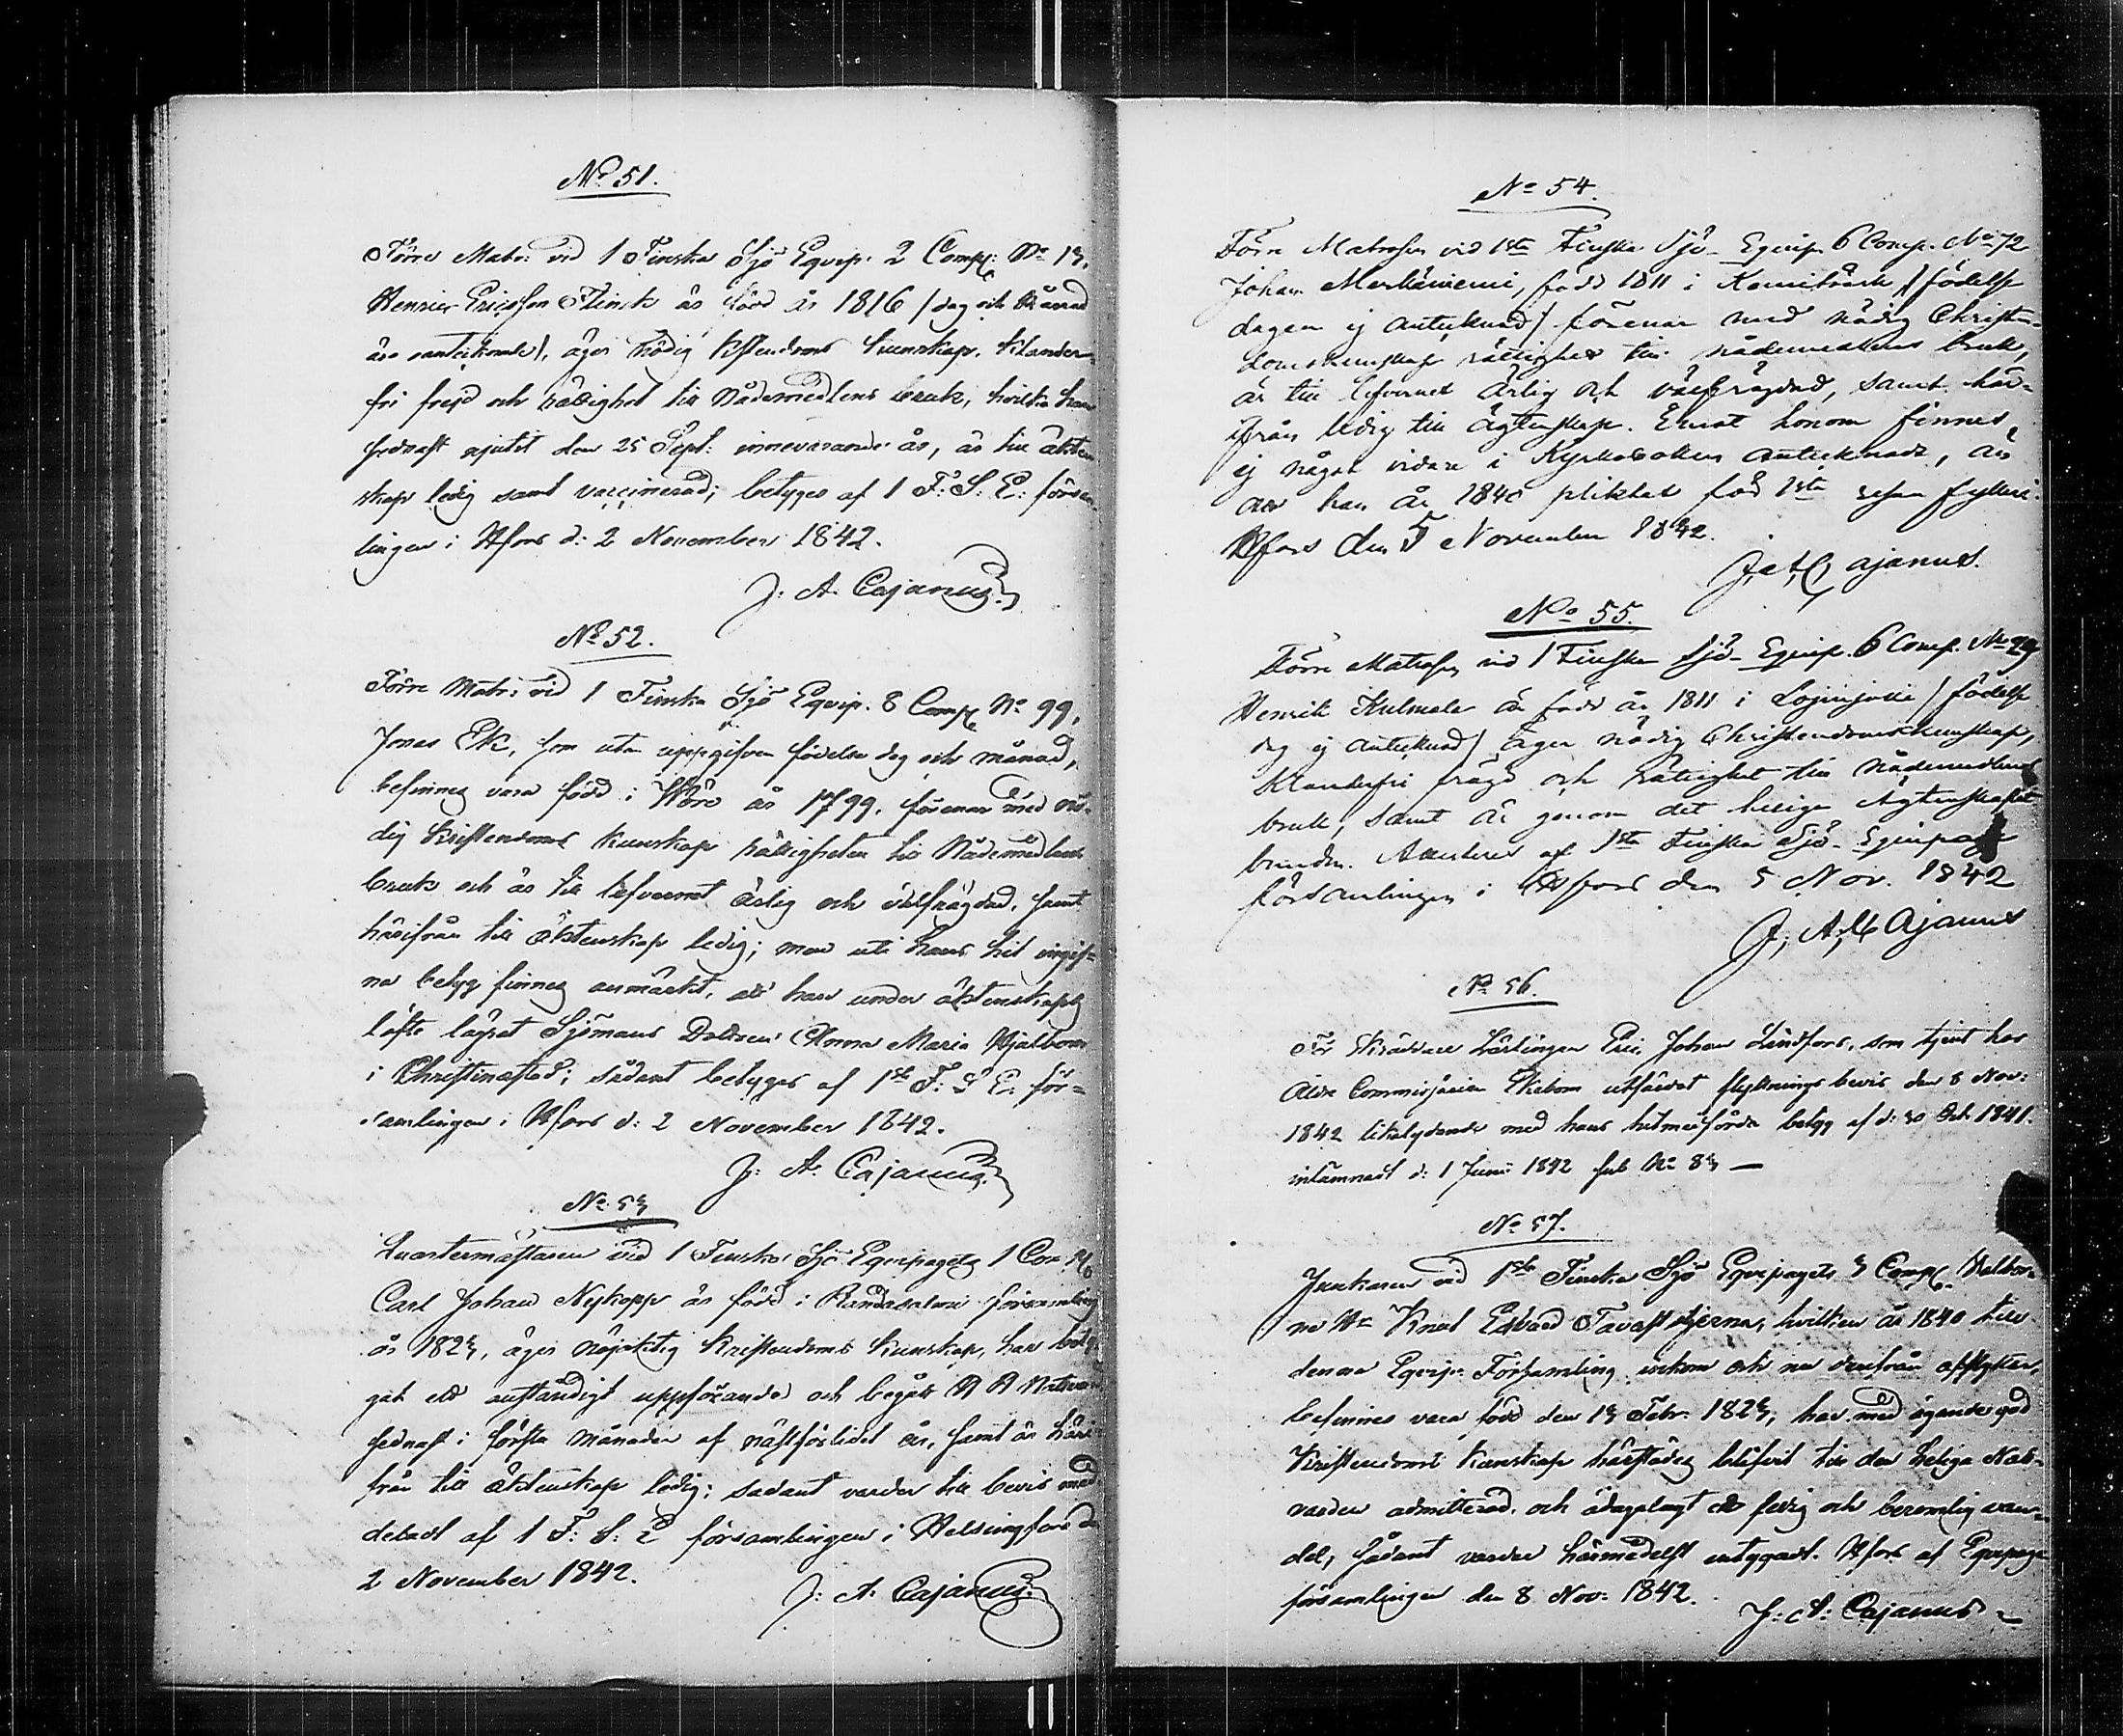 No 51.
Förre Matr: vid 1 Finska Sjö Eqvip. 2 Comp: No 13.
Henric Ericsson Flinck är född år 1816 /dag och månad
äro antecknade/, äger nödig Kristendoms kunskap. Klander-
fri frejd och rättighet till Nådemedlens bruk, hvilka han
sednast njutit den 25 Sept: innevarande år, är till äkten-
skap ledig samt vaccinerad; betygas af 1 F: S: E: försam-
lingen i Hfors d: 2 November 1842.
J: A: Cajanus.
No 52.
Förre Matr: vid 1 Finska Sjö Eqvip. 8 Comp No 99.
Jonas Ek, som utan uppgifven födelse dag och månad,
befinnes vara född i Wörå år 1799, förenar med nö-
dig Kristendoms kunskap rättigheten till Nådemedlens
bruk och är till lefvernet ärlig och välfrägdad, samt
härifrån till äktenskap ledig; men uti hans hit ingif-
na betyg finnes anmärkt, att han under äktenskaps
löfte lägrat Sjömans Dottren Anna Maria Hjälbom
i Christinestad; sådant betygas af 1sta F: S: E: för=
samlingen i Hfors d: 2 November 1842.
J: A: Cajanus.
No 53
Quartermästaren vid 1 Finska Sjö Eqvipagets 1 Com
Carl Johan Nykopp är född i Randasalmi församling
år 1823, äger nöjaktig Kristendoms kunskap, har
gat ett anständigt uppförande och begått H H Nattvard
sednast i första månaden af nästförlidet år, samt är häri-
från till äktenskap ledig; sådant varder till bevis med-
deladt af 1 F: S: E församlingen i Helsingfors d
2 November 1842.
J: A: Cajanus.
No 54.
Förre Matrosen vid 1sta Finska Sjö-Equip. 6 Comp. No 72
Johan Merkäniemi, född 1811 i /födelse
dagen ej antecknad/ förenar med nödig Christen-
domskunskap rättighet till nådemedlens bruk,
är till lefvernet ärlig och välfrägdad, samt här-
ifrån ledig till ägtenskap. Emot honom finnes
ej något vidare i Kyrkoboken antecknadt, än
att han år 1840 pliktat för 1sta resan fylleri.
Hfors den 5 November 1842.
J: A: Cajanus.
No 55.
Förre Matrosen vid 1 Finska Sjö-Equip. 6 Comp. No 29
Henrik Kulmala är född år 1811 i /födelse
dag ej antecknad/ äger nödig Christendomskunskap,
Klanderfri frägd och rättighet till nådemedlens
bruk, samt är genom det heliga Ägtenskapet
bunden. Attesteras af 1sta Finska Sjö-Equipage
församlingen i Hfors den 5 Nov. 1842
J: A: Cajanus
No 56.
För Lärlingen Eric Johan Lindfors, som tjent hos
Äldre Commissarien Ekebom utfärdat flyttnings bevis den 8 Nov:
1842 likalydande med hans hitmedförda betyg af d: 30 Oct. 1841.
inlämnadt d: 1 Juni 1842 sub No 83 —
No 57.
Junkaren vid 1sta Finska Sjö Eqvipagets 3 Comp. Välbor-
ne Hr Knut Edvard Tavaststjerna, hvilken år 1840 till
denna Eqvip. Församling inkom och nu derifrån afflyttar,
befinnes vara född den 13 Febr. 1823, har med ägande god
Kristendoms kunskap härstädes blifvit till den heliga Natt-
varden admitterad, och ådagalagt ett fedig och berömlig van-
del, sådant varder härmedelst intygadt. Hfors af Eqvipage
församlingen den 8 Nov: 1842.
J: A: Cajanus